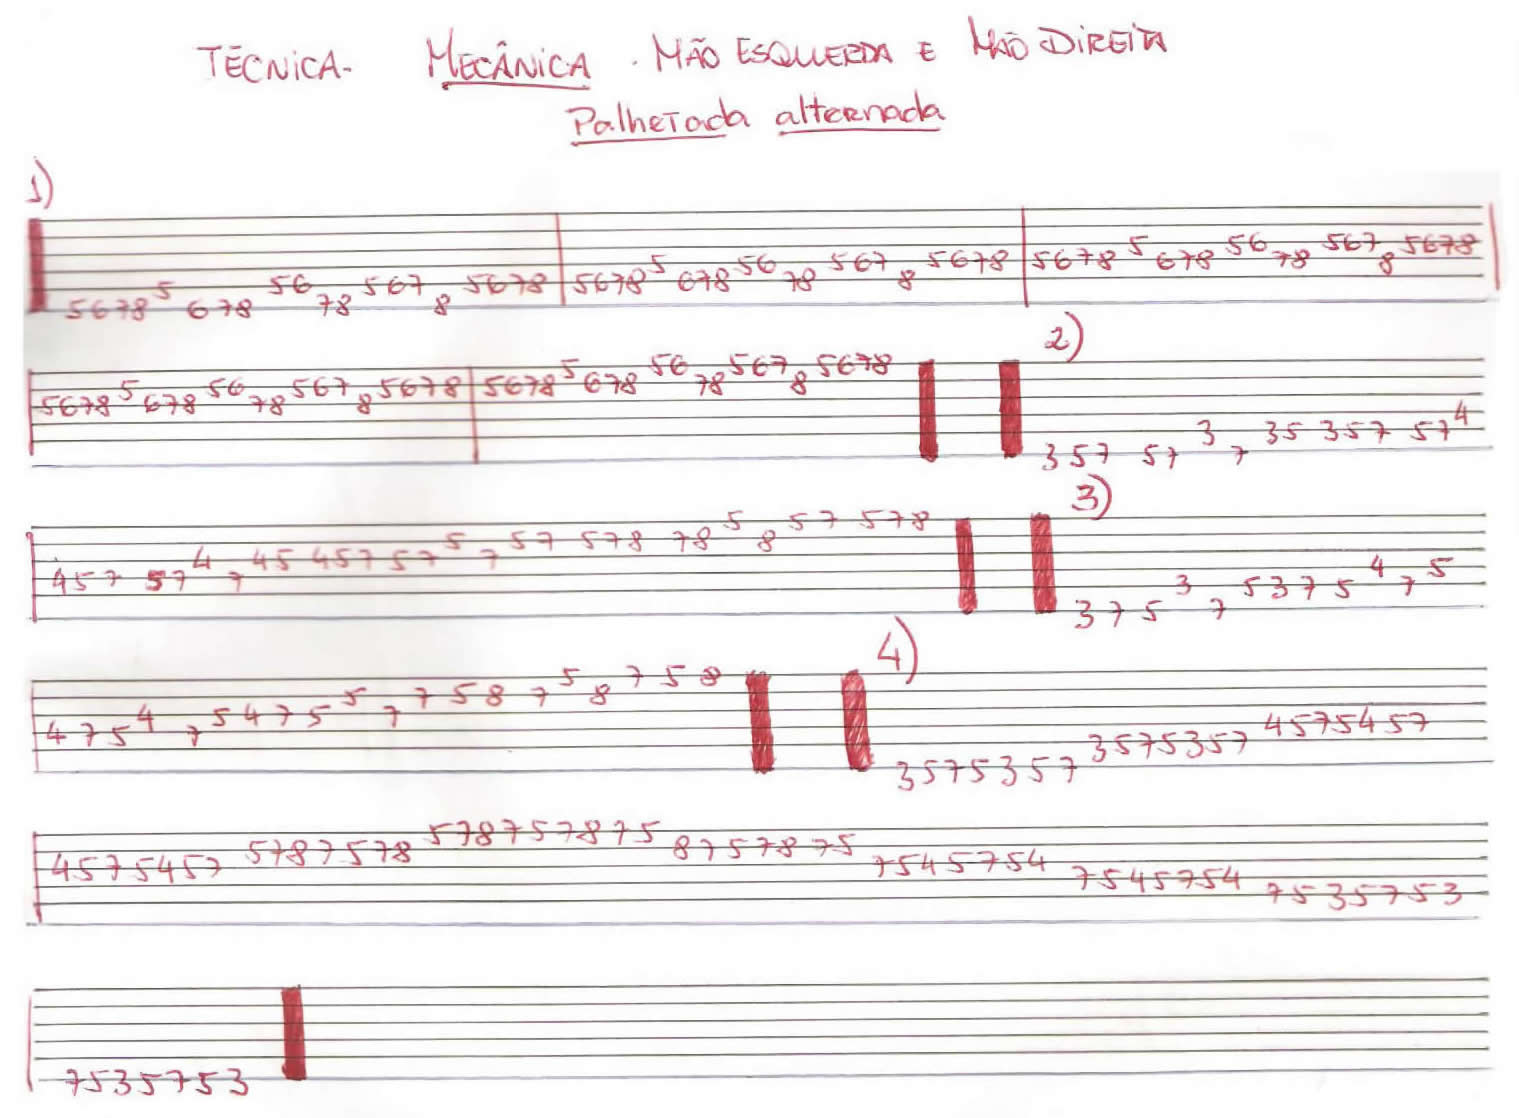 TÉCNICA - MECÂNICA . MÃO ESQUERDA E MÃO DIREITA
Palhetada alternada
1)
5678 5 678 56 78 567 8 5678 5678 5 678 56 78 567 8 5678 5678 5 678 56 78 567 8 5678
2)
5678 5 678 56 78 567 8 5678 5678 5 678 56 78 567 8 5678 357 57 3 7 35 357 57 4
3)
457 57 4 7 45 457 57 5 7 57 578 78 5 8 57 578 375 3 7 5375 4 7 5
4)
475 4 7 5475 5 7 758 7 5 8 758 3575357 3575357 4575457
4575457 5787578 578757875 8757875 7545754 7545754 7535753
7535753